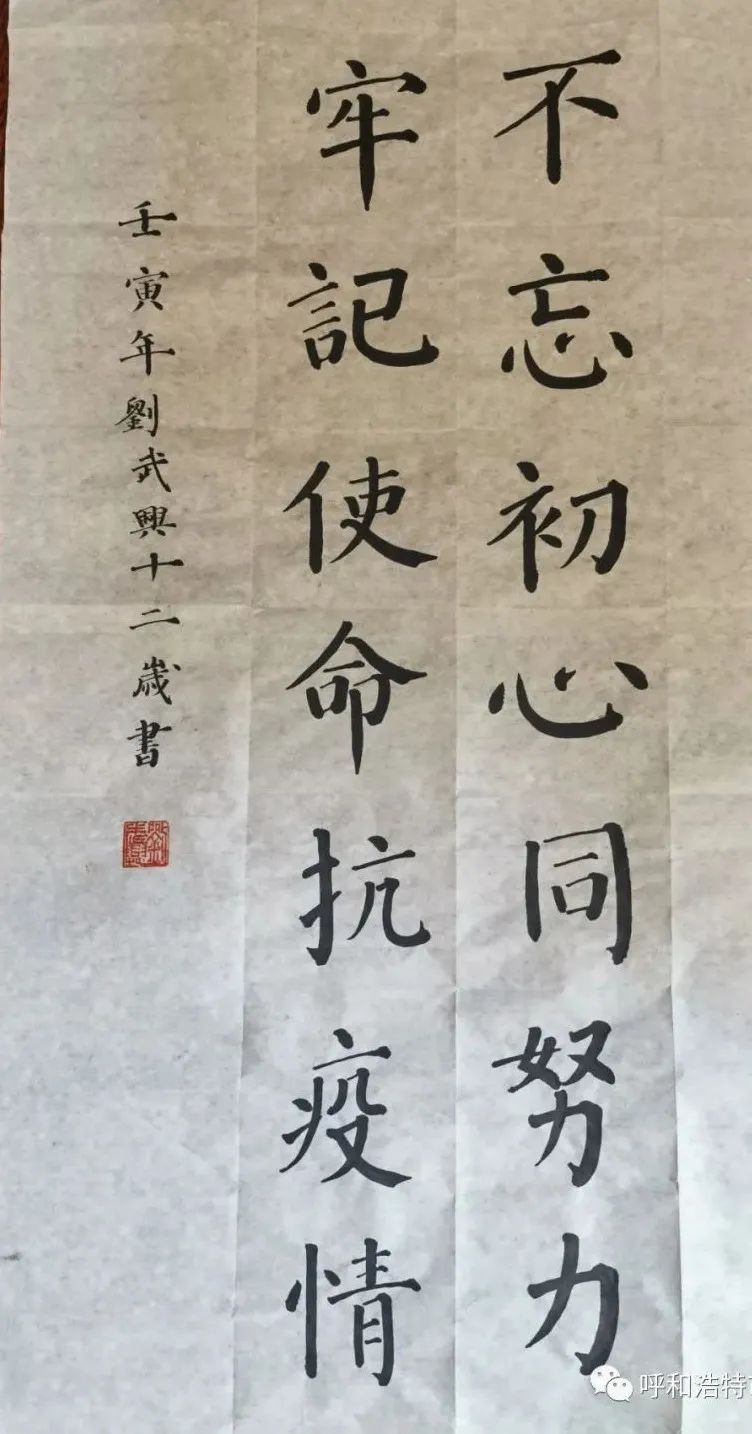 不忘初心同努力
牢記使命抗疫情
壬寅年劉武興十二歲書
呼和浩特